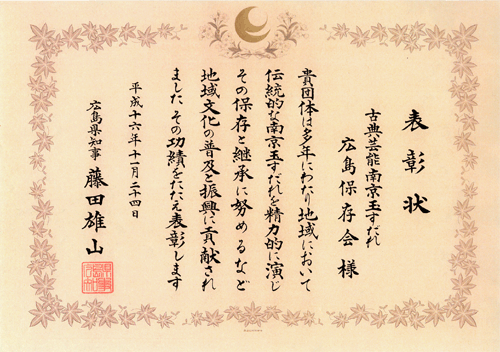 表彰状
古典芸能南京玉すだれ
広島保存会様
貴団体は多年にわたり地域において
伝統的な南京玉すだれを精力的に演じ
その保存と継承に努めるなど
地域文化の普及と振興に貢献され
ました、その功績をたたえ表彰します
平成十六年十一月二十四日
広島県知事 藤田雄山